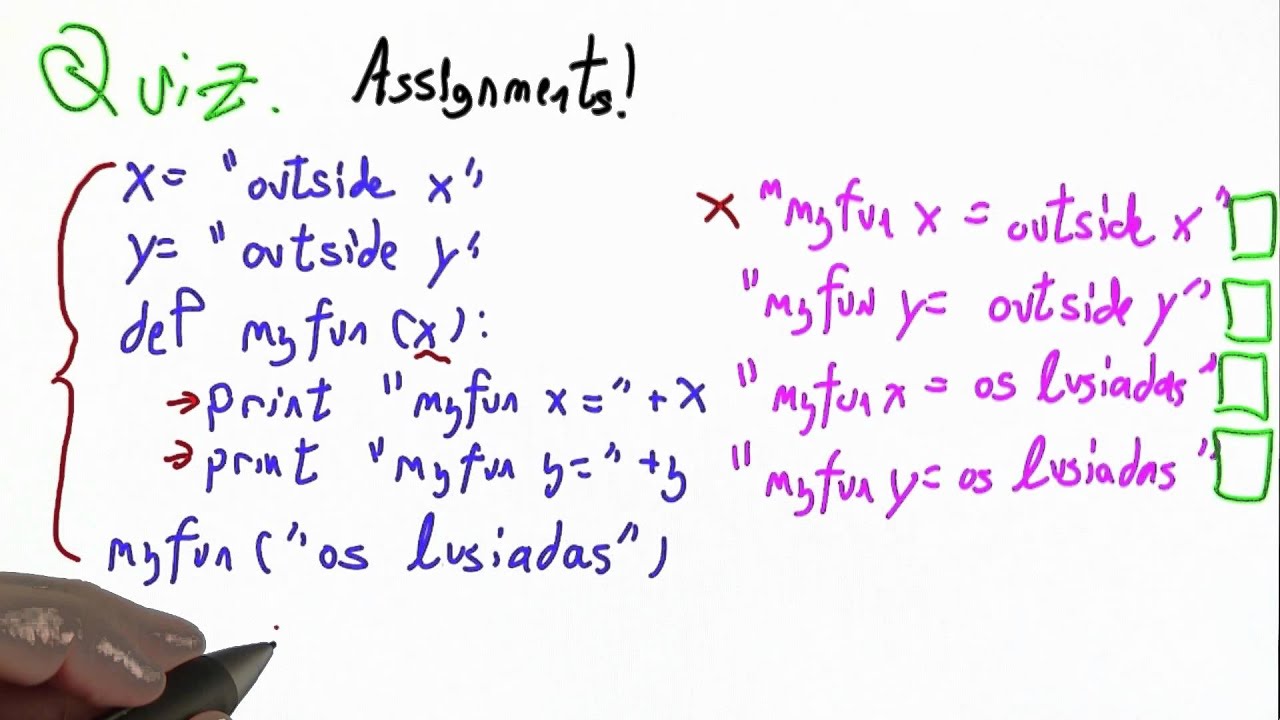 Quiz. Assignments!
x= "outside x"
y= "outside y"
def myfun (x):
→ print "myfun x=" + x
→ print "myfun y=" +y
myfun ("os lusiadas")
x "myfun x = outside x"
"myfun y= outside y"
"myfun x = os lusiadas"
"myfun y= os lusiadas"